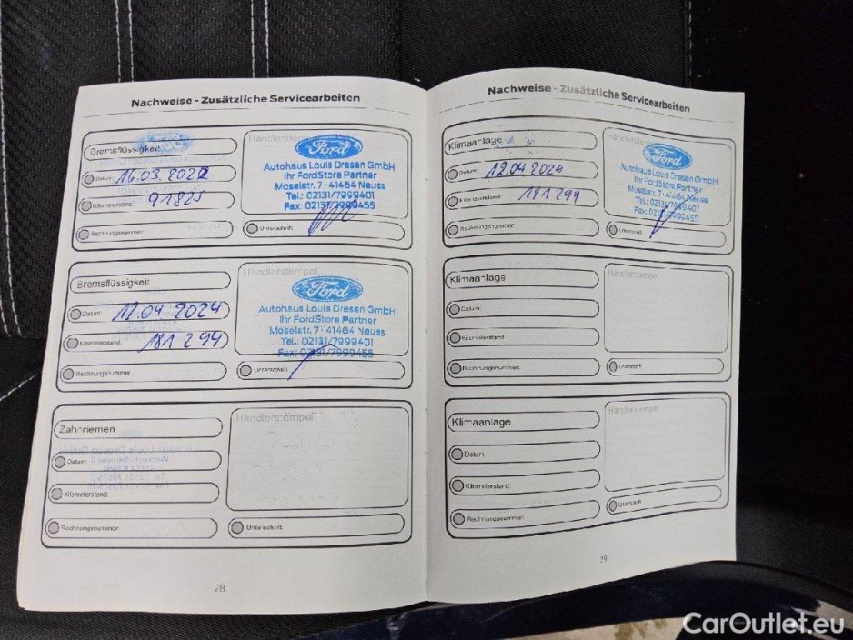 Nachweise - Zusätzliche Servicearbeiten
Bremsflüssigkeit
Händlerstempel
Ford
Datum: 16.03.2022
Autohaus Louis Dresen GmbH
Ihr FordStore Partner
Kilometerstand: 91825
Moselstr. 7 · 41464 Neuss
Tel.: 02131/7999401
Fax: 02131/7999455
Rechnungsnummer:
Unterschrift:
Bremsflüssigkeit
Händlerstempel
Ford
Datum: 12.04 2024
Autohaus Louis Dresen GmbH
Ihr FordStore Partner
Kilometerstand: 181 294
Moselstr. 7 · 41464 Neuss
Tel.: 02131/7999401
Fax: 02131/7999455
Rechnungsnummer
Unterschrift:
Zahnriemen
Händlerstempel
Datum:
Kilometerstand:
Rechnungsnummer:
Unterschrift:
28
Nachweise - Zusätzliche Servicearbeiten
Klimaanlage
Ford
Datum: 12.04 2024
Autohaus Louis Dresen GmbH
Ihr FordStore Partner
Kilometerstand: 181 294
Moselstr. 7 · 41464 Neuss
Tel.: 02131/7999401
Fax: 02131/7999455
Rechnungsnummer:
Unterschrift:
Klimaanlage
Händlerstempel
Datum:
Kilometerstand:
Rechnungsnummer:
Unterschrift:
Klimaanlage
Händlerstempel
Datum:
Kilometerstand:
Rechnungsnummer:
Unterschrift:
29
CarOutlet.eu